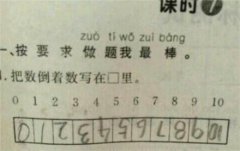 课时 1
zuò tí wǒ zuì bàng
一、按要求做题我最棒。
1.把数倒着数写在□里。
0 1 2 3 4 5 6 7 8 9 10
0 1 2 3 4 5 6 7 8 9 10